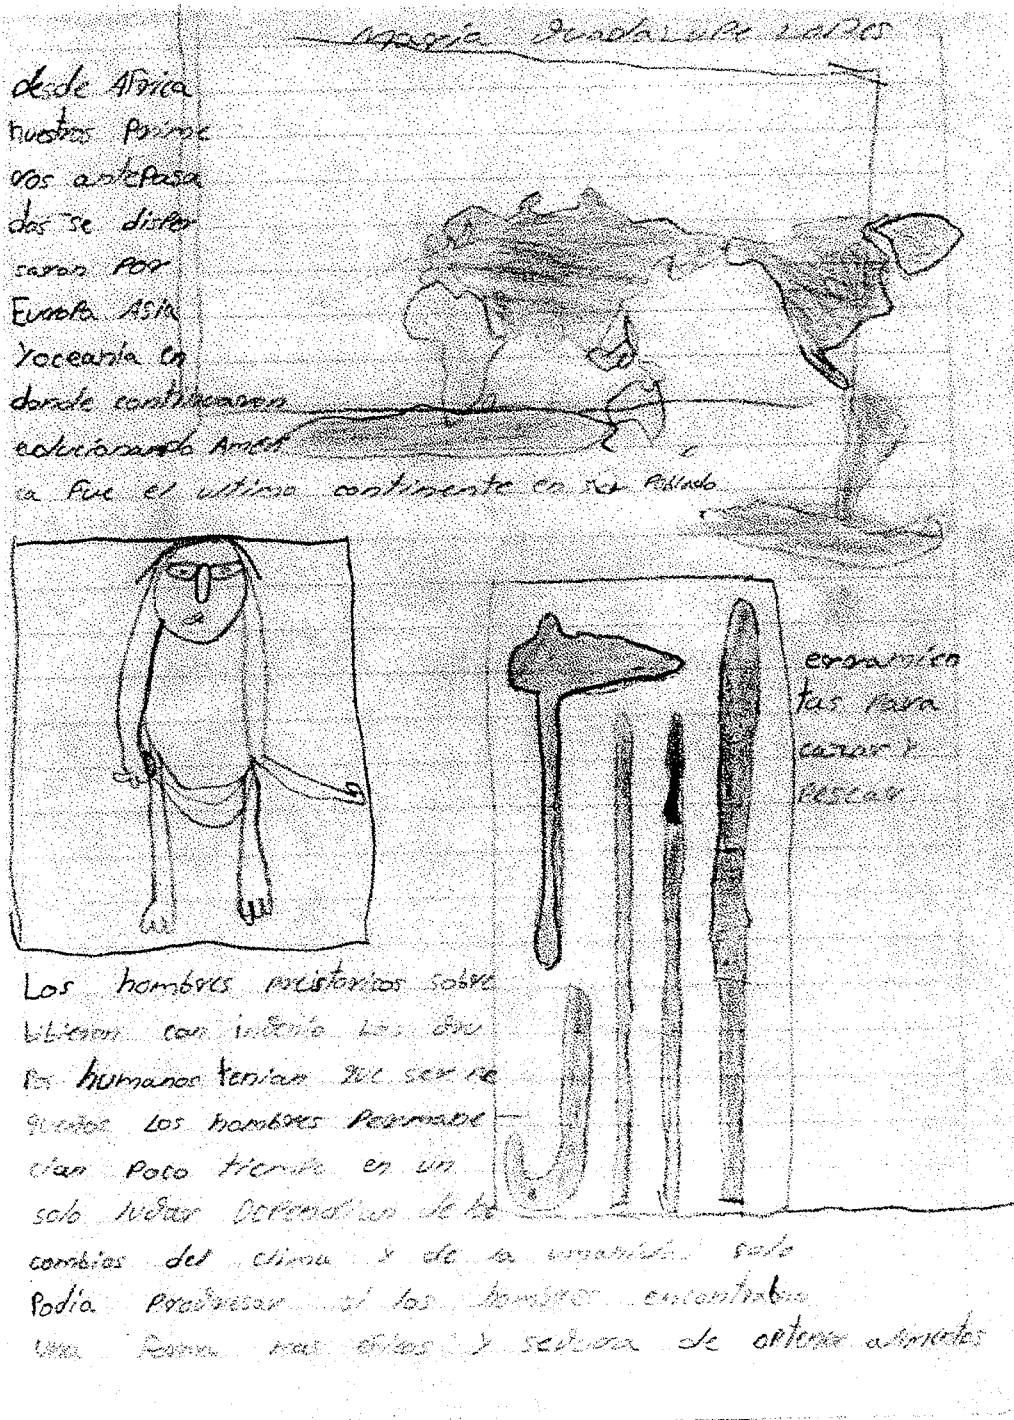 María Guadalupe Valdes
desde Africa
nuestros Prime
ros antePasa
dos se disPer
saron Por
EuroPa Asia
Y oceanía en
donde continuaron
evolucionando Ameri
ca Fue el ultimo continente en ser Poblado
erramien
tas Para
cazar Y
Pescar
Los hombres preistoricos sobre
bibieron con ingenio Los gru
Pos humanos tenian que ser Pe
queños Los hombres Permane
cían Poco tiempo en un
solo lugar DePendian de los
cambios del clima Y de la umanidad solo
Podia Progresar si los hombres encontraban
una Forma mas eficas Y segura de obtener alimentos